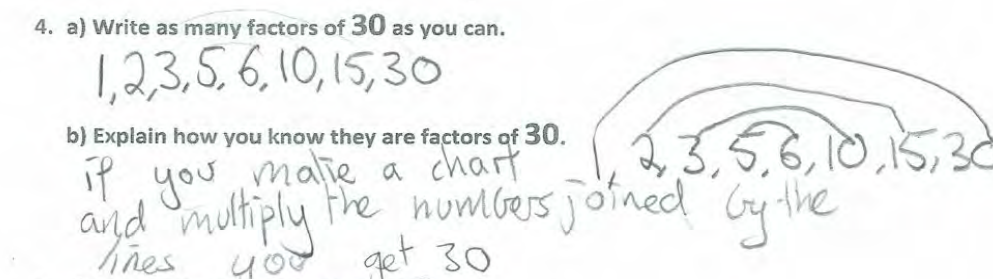 4. a) Write as many factors of 30 as you can.
1,2,3,5,6,10,15,30
b) Explain how you know they are factors of 30.
1, 2, 3, 5, 6, 10, 15, 30
if you make a chart
and multiply the numbers joined by the
lines you get 30